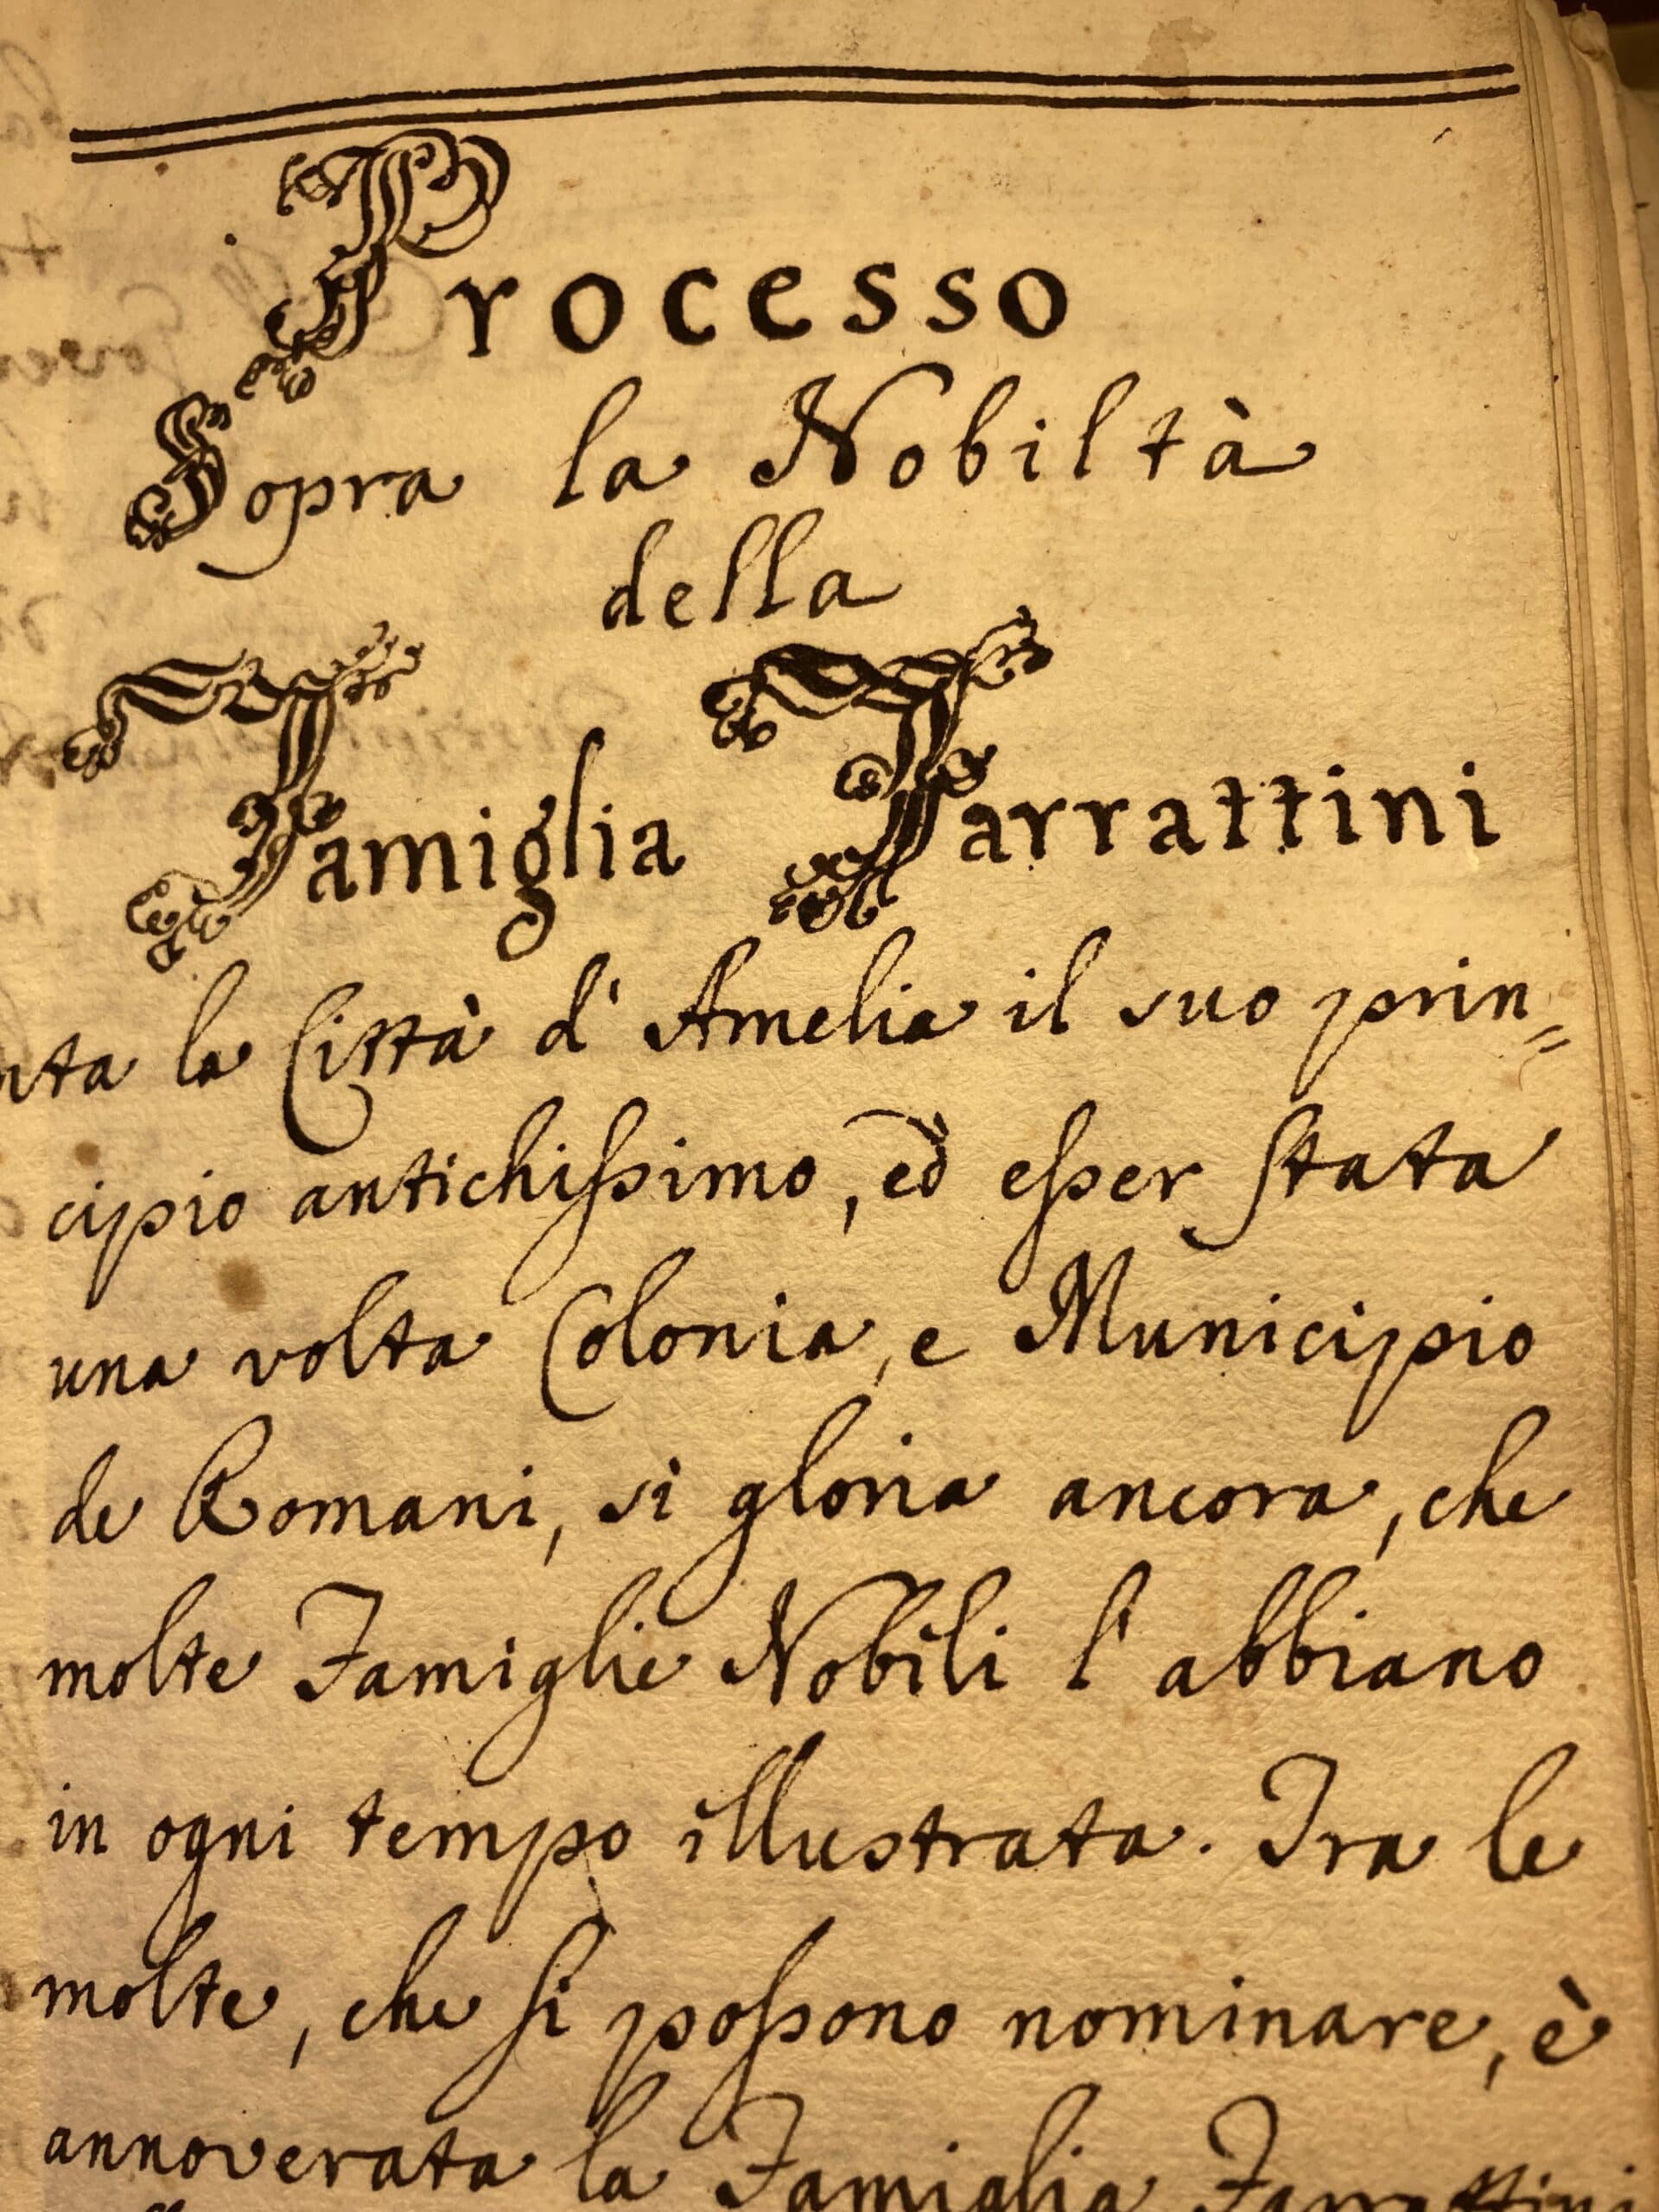 Processo
Sopra la Nobiltà
della
Famiglia Farrattini
la Città d' Amelia il suo prin=
cipio antichissimo, ed esser stata
una volta Colonia, e Municipio
de Romani, si gloria ancora, che
molte Famiglie Nobili l' abbiano
in ogni tempo illustrata. Tra le
molte, che si possono nominare, è
annoverata la Famiglia Farrattini